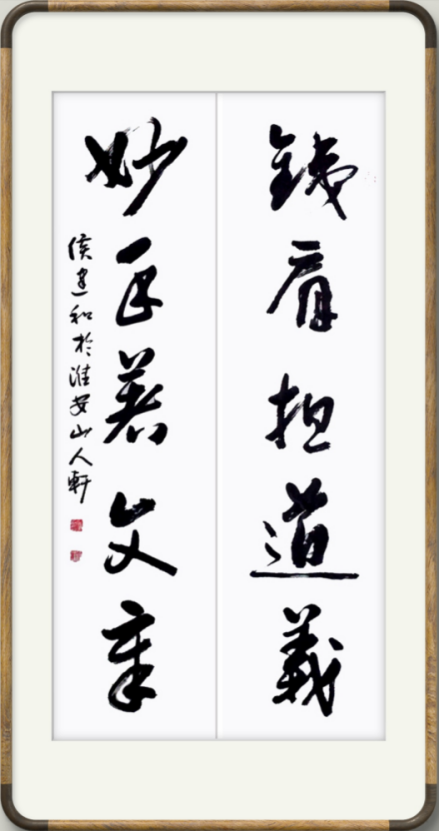 銕肩担道義
妙手著文章
侯建和於淮安山人軒